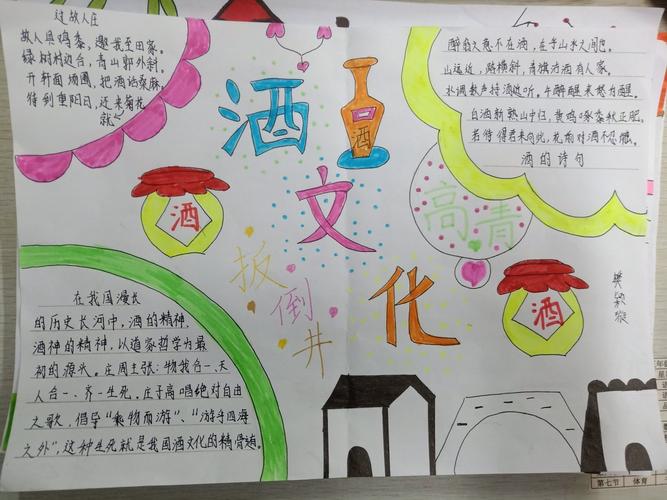 过故人庄
故人具鸡黍，邀我至田家。
绿树村边合，青山郭外斜。
开轩面场圃，把酒话桑麻。
待到重阳日，还来菊花
就
酒
文
化
酒
醉翁之意不在酒，在乎山水之间也。
山远近，路横斜，青旗沽酒有人家。
水调数声持酒听，午醉醒来愁未醒。
白酒新熟山中归，黄鸡啄黍秋正肥。
若待得君来向此，花前对酒不忍触。
酒的诗句
酒
高青
扳
倒
井
酒
在我国漫长
的历史长河中，酒的精神，
酒神的精神，以道家哲学为最
初的源头。庄周主张：物我合一，天
人合一、齐一生死。庄子高唱绝对自由
之歌，倡导“乘物而游”、“游乎四海
之外”，这种生死就是我国酒文化的精骨髓。
第七节 体育